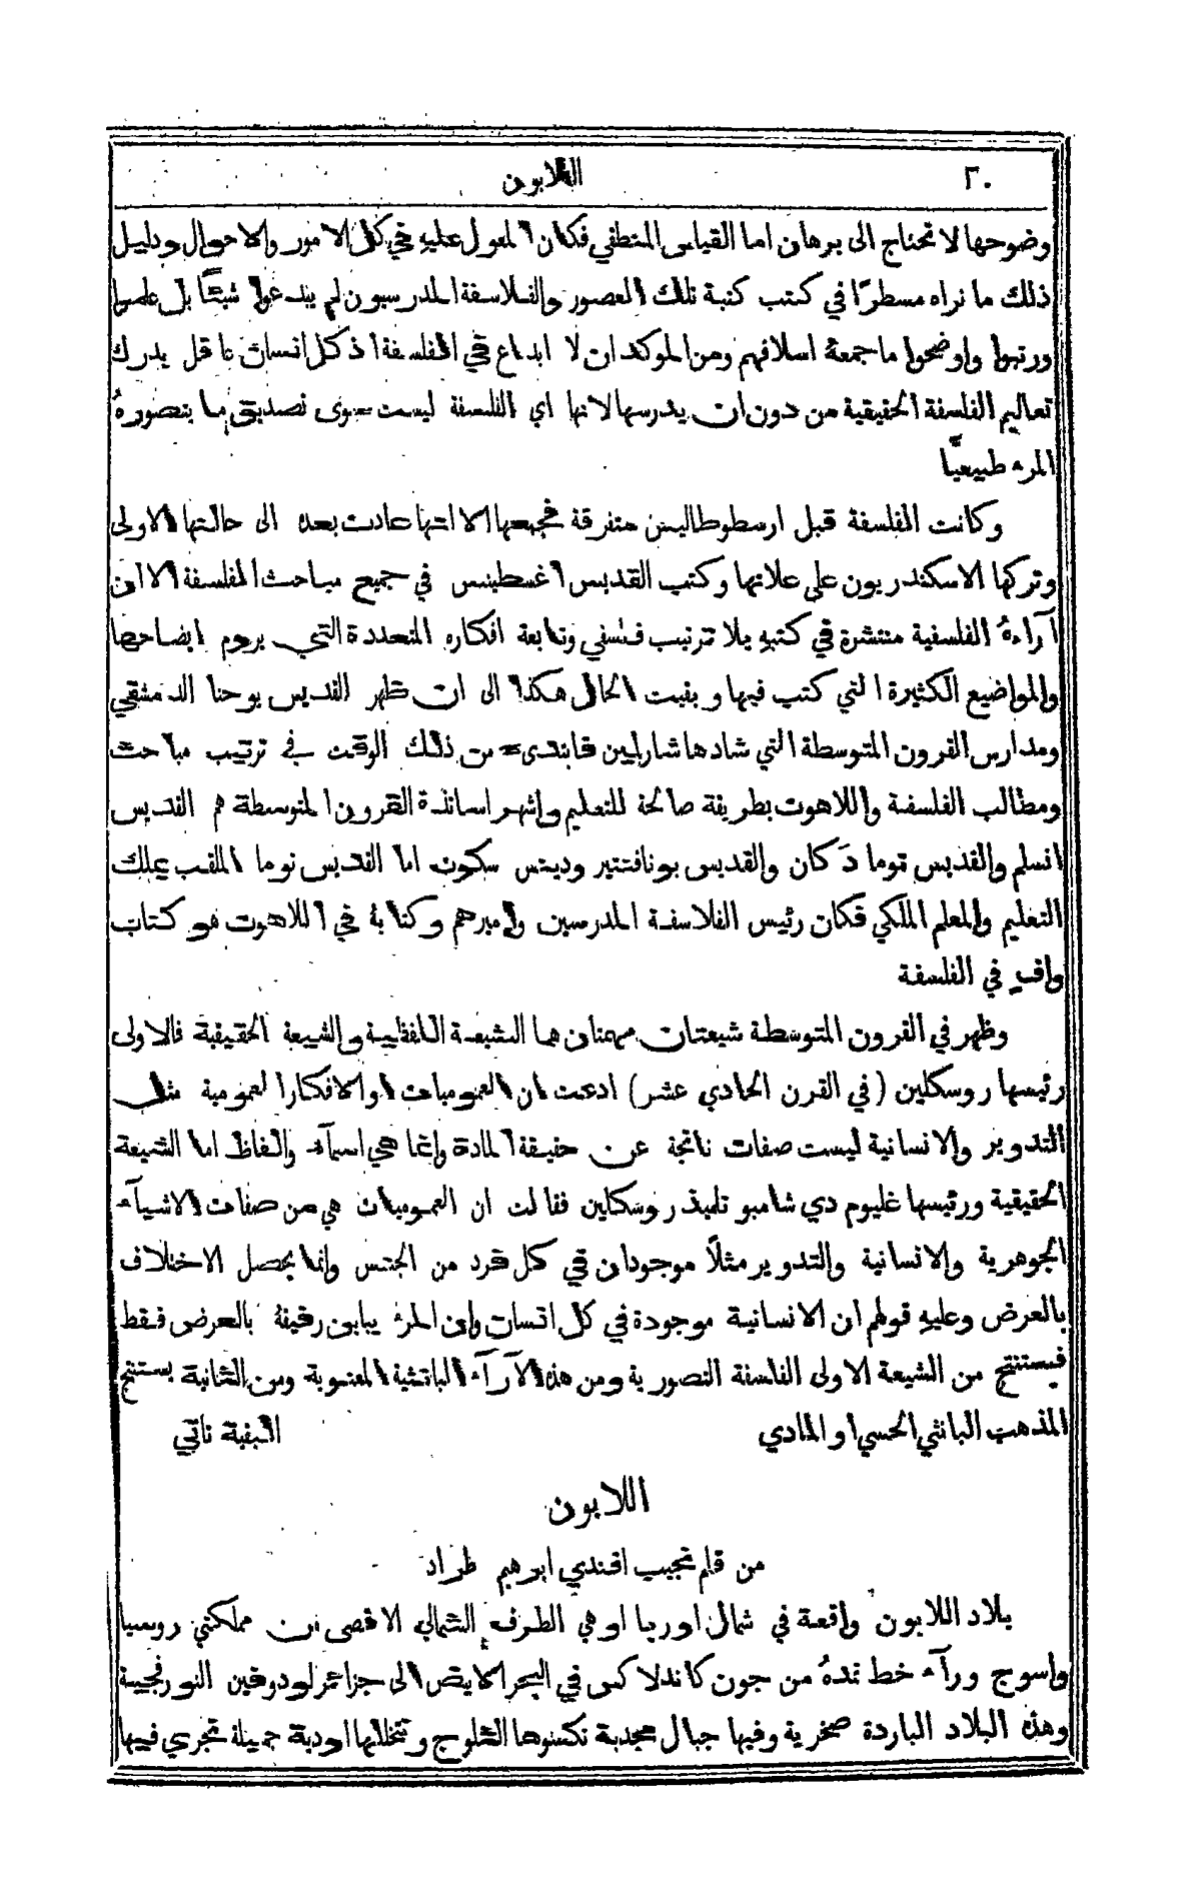 ٢٠ اللابون
وضوحها لا تحتاج الى برهان اما القياس المنطقي فكان المعول عليهِ في كل الامور والاحوال ودليل
ذلك ما نراه مسطرًا في كتب كتبة تلك العصور والفلاسفة المدرسيون لم يبتدعوا شيئًا بل علموا
ورتبوا واوضحوا ما جمعهُ اسلافهم ومن الموكد ان لا ابداع في الفلسفة اذ كل انسان عاقل يدرك
تعاليم الفلسفة الحقيقية من دون ان يدرسها لانها اي الفلسفة ليست سوى تصديق ما يتصورهُ
المرء طبيعيًا
وكانت الفلسفة قبل ارسطوطاليس متفرقة فجمعها الا انها عادت بعده الى حالتها الاولى
وتركها الاسكندريون على علاتها وكتب القديس اغسطينس في جميع مباحث الفلسفة الا ان
آراءهُ الفلسفية منتشرة في كتبهِ بلا ترتيب فلسفي وتابعة افكاره المتعددة التي يروم ايضاحها
والمواضيع الكثيرة التي كتب فيها وبقيت الحال هكذا الى ان ظهر القديس يوحنا الدمشقي
ومدارس القرون المتوسطة التي شادها شارلمين فابتدىء من ذلك الوقت في ترتيب مباحث
ومطالب الفلسفة واللاهوت بطريقة صالحة للتعليم واشهر اساتذة القرون المتوسطة هم القديس
انسلم والقديس توما دَكان والقديس بونافنتير وديتس سكوت اما القديس توما الملقب بملك
التعليم والمعلم الملكي فكان رئيس الفلاسفة المدرسين واميرهم وكتابهُ في اللاهوت هو كتاب
وافٍ في الفلسفة
وظهر في القرون المتوسطة شيعتان مهمتان هما الشيعة اللفظية والشيعة الحقيقية فالاولى
رئيسها روسكلين (في القرن الحادي عشر) ادعت ان العموميات او الافكار العمومية مثل
التدوير والانسانية ليست صفات ناتجة عن حقيقة المادة وانما هي اسمآء والفاظ اما الشيعة
الحقيقية ورئيسها غليوم دي شامبو تلميذ روسكلين فقالت ان العموميات هي من صفات الاشيآء
الجوهرية والانسانية والتدوير مثلًا موجودان في كل فرد من الجنس وانما يحصل الاختلاف
بالعرض وعليهِ قولهم ان الانسانية موجودة في كل انسان وان المرء يباين رفيقهُ بالعرض فقط
فيستنتج من الشيعة الاولى الفلسفة التصورية ومن هذه الآرآء الباتثية المعنوية ومن الثانية يستنتج
المذهب الباتثي الحسي او المادي البقية تاتي
اللابون
من قلم نجيب افندي ابرهيم طراد
بلاد اللابون واقعة في شمال اوربا وهي الطرف الشمالي الاقصى من مملكتي روسيا
واسوج ورآء خط تمدهُ من جون كاندلاكس في البحر الابيض الى جزائر لودوفين النورفجية
وهذه البلاد الباردة صخرية وفيها جبال مجدبة تكسوها الثلوج وتتخللها اودية جميلة تجري فيها